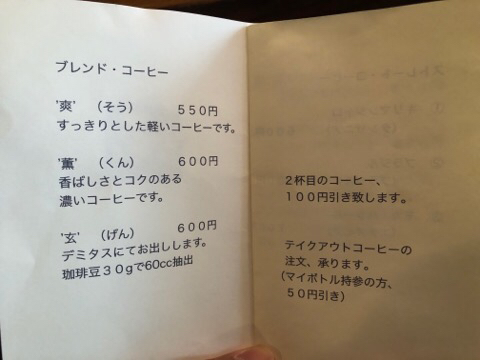 ブレンド・コーヒー
'爽' （そう） ５５０円
すっきりとした軽いコーヒーです。
'薫' （くん） ６００円
香ばしさとコクのある
濃いコーヒーです。
'玄' （げん） ６００円
デミタスにてお出しします。
珈琲豆３０gで60cc抽出
２杯目のコーヒー、
１００円引き致します。
テイクアウトコーヒーの
注文、承ります。
（マイボトル持参の方、
５０円引き）